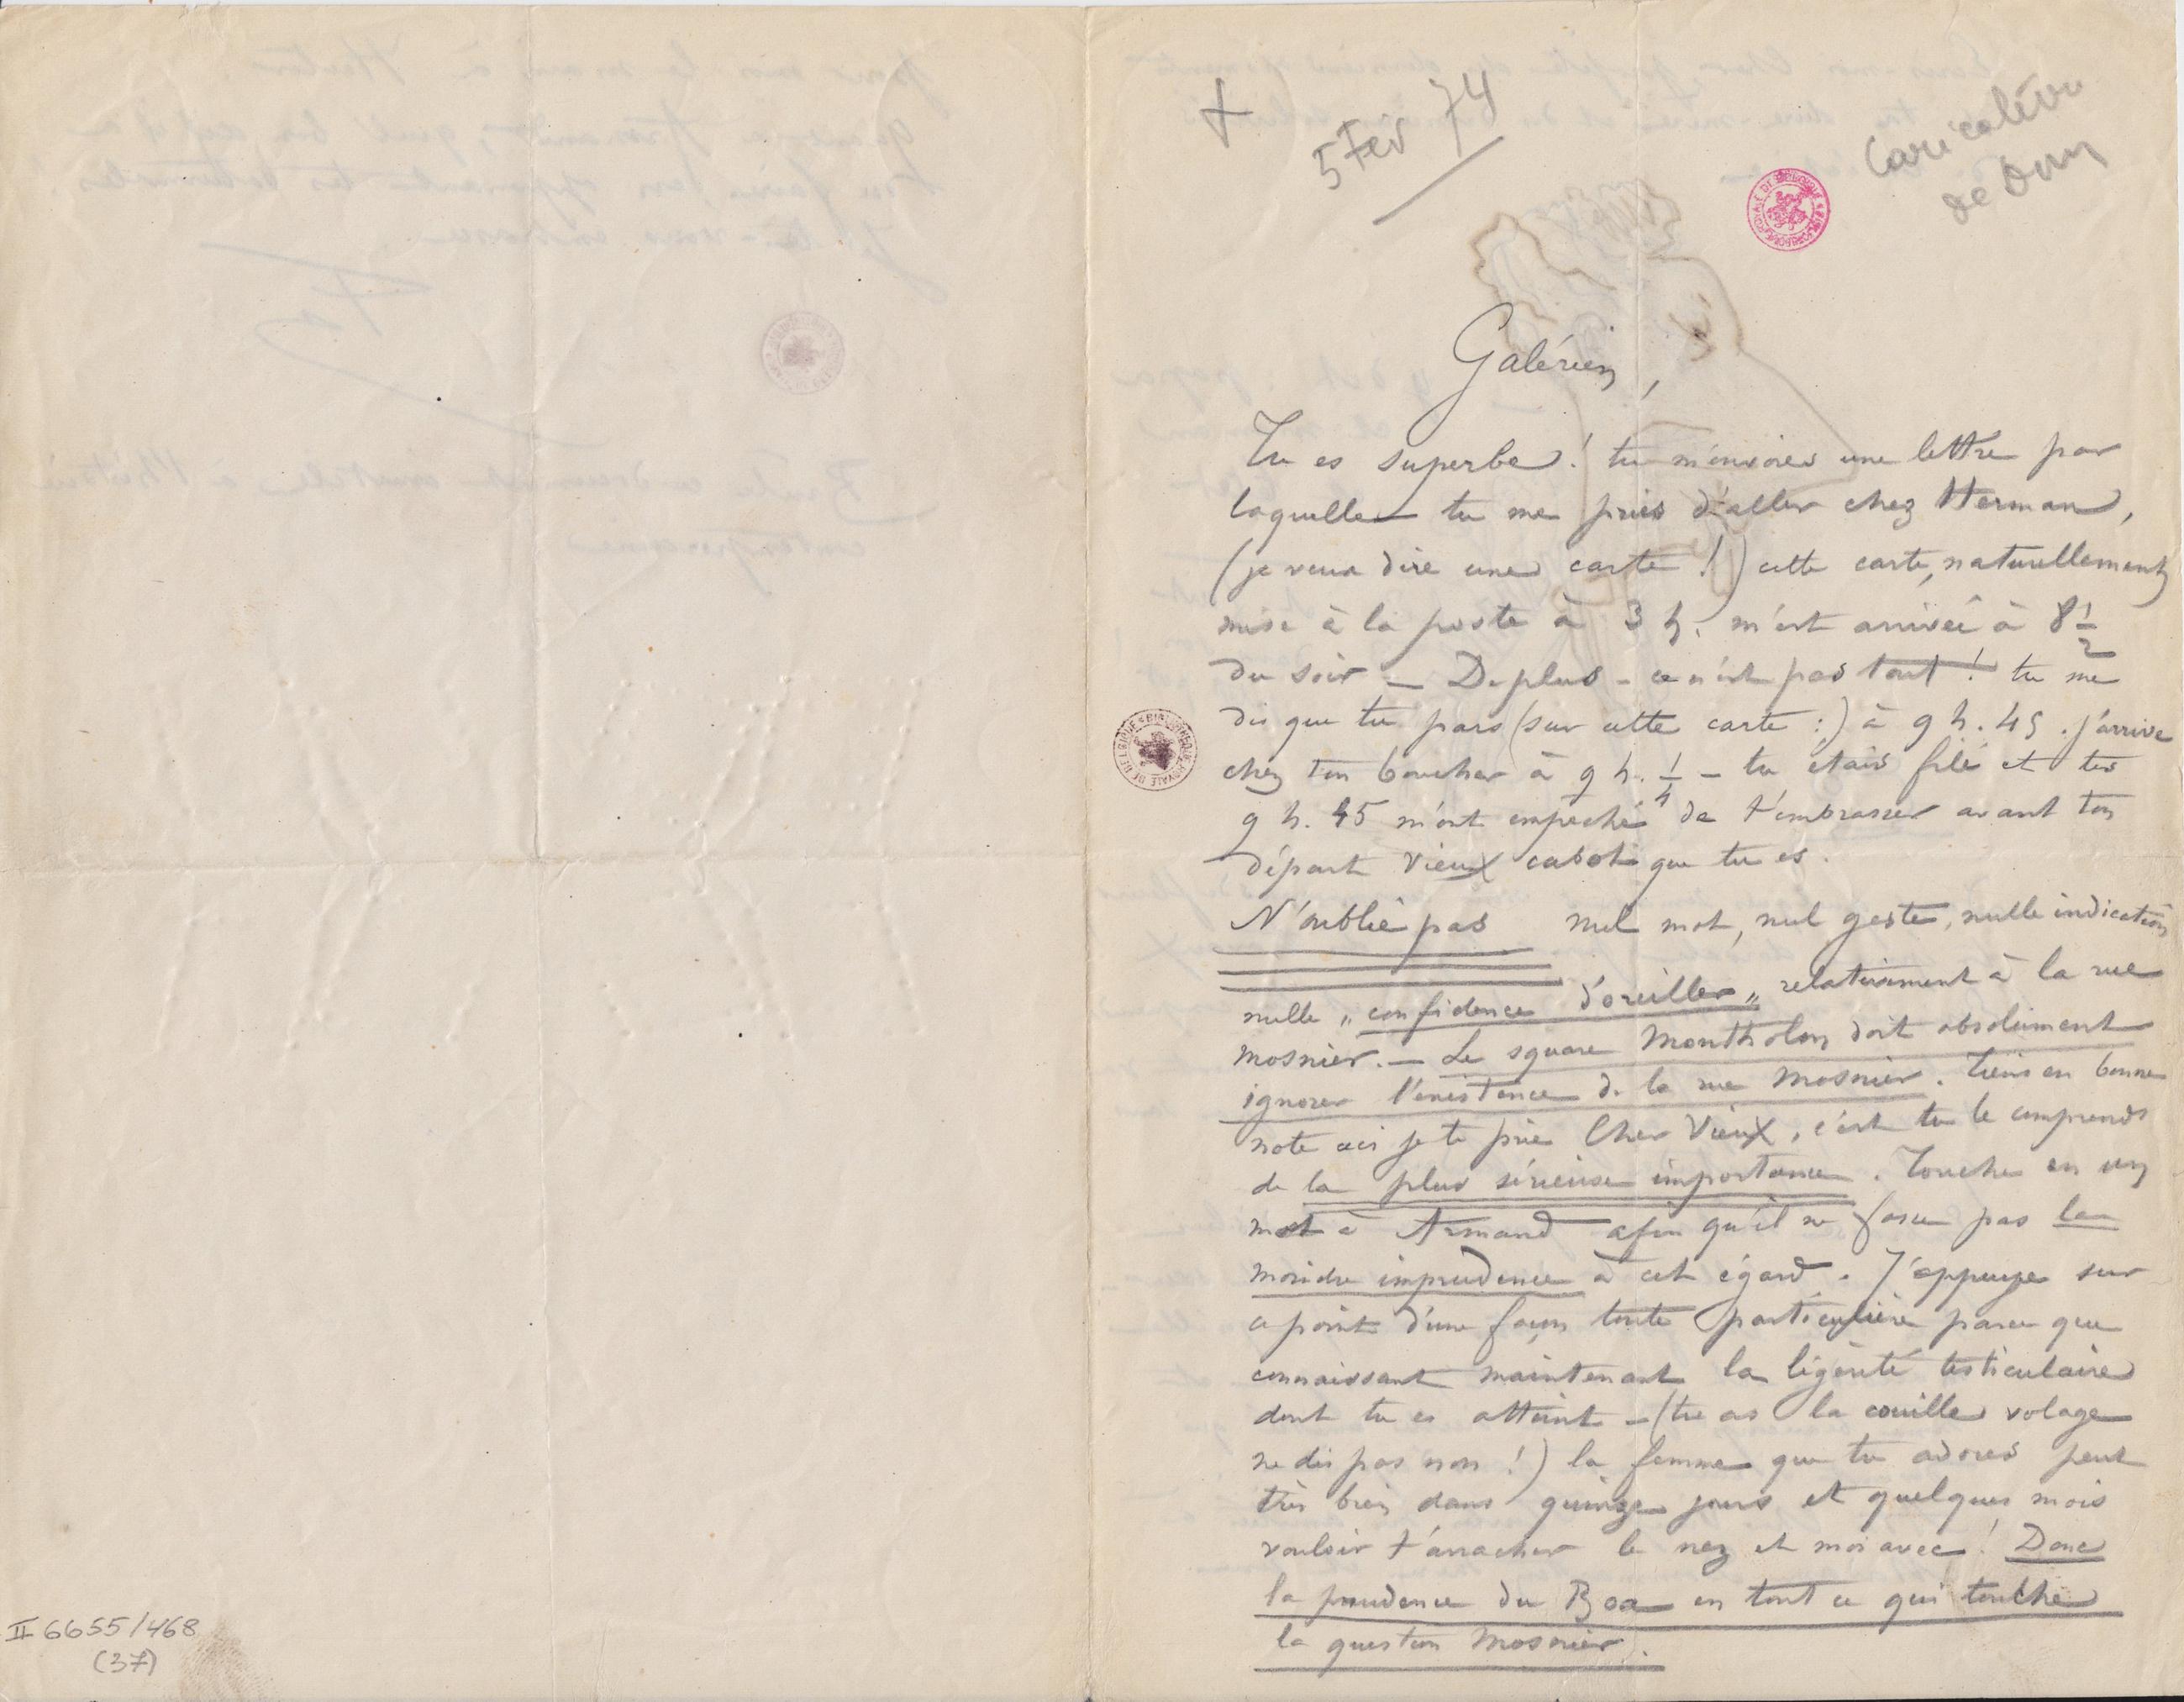 +
5 Fev 74
Caricature
de Dom
Galérien,
Tu es superbe ! tu m'envoies une lettre par
laquelle tu me pries d'aller chez Herman,
(je veux dire une carte !) cette carte, naturellement
mise à la poste à 3 h. m'est arrivée à 8 1/2
du soir — De plus - ce n'est pas tout ! tu me
dis que tu pars (sur cette carte :) à 9 h. 45 . j'arrive
chez ton boucher à 9 h. 1/4 – tu étais filé et tes
9 h. 45 m'ont empeché de t'embrasser avant ton
départ vieux cabot que tu es.
N'oublie pas nul mot, nul geste, nulle indication
nulle „ confidence d'oreiller „ relativement à la rue
Mosnier. — Le square Montholon doit absolument
ignorer l'existence de la rue Mosnier. Tiens en bonne
note ceci je te prie Cher Vieux, c'est tu le comprends
de la plus sérieuse importance. Touche en un
mot à Armand afin qu'il ne fasse pas la
moindre imprudence à cet égard. J'appuye sur
ce point d'une façon toute particulière parce que
connaissant maintenant la légèreté testiculaire
dont tu es atteint – (tu as la couille volage
ne dis pas non !) la femme que tu adores peut
très bien dans quinze jours et quelques mois
vouloir t'arracher le nez et moi avec ! Donc
la prudence du Boa en tout ce qui touche
la question Mosnier.
II 6655/468
(37)